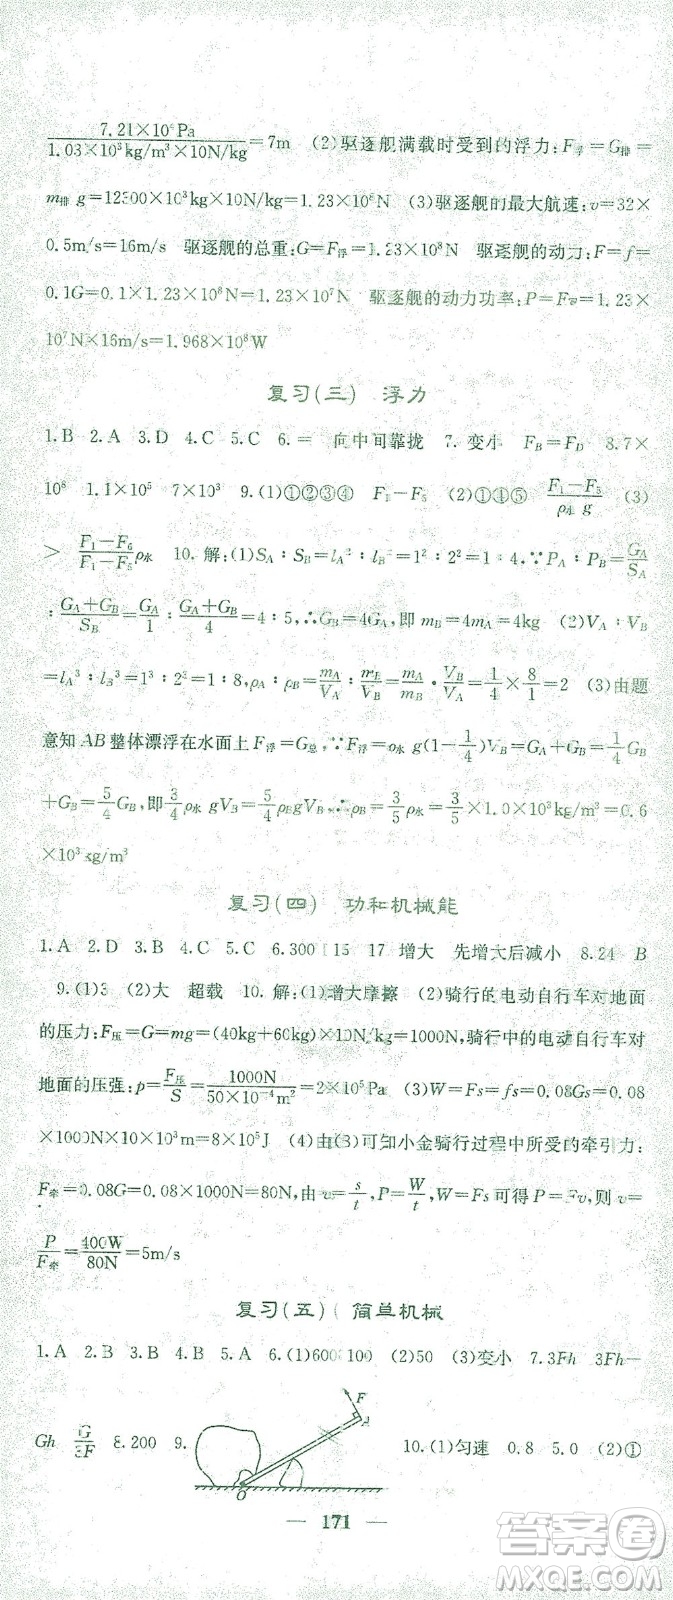 7.21×10⁴Pa / 1.03×10³kg/m³×10N/kg =7m (2)驱逐舰满载时受到的浮力:F浮=G排=
m排 g=12300×10³kg×10N/kg=1.23×10⁸N (3)驱逐舰的最大航速:v=32×
0.5m/s=16m/s 驱逐舰的总重:G=F浮=1.23×10⁸N 驱逐舰的动力:F=f=
0.1G=0.1×1.23×10⁸N=1.23×10⁷N 驱逐舰的动力功率:P=Fv=1.23×
10⁷N×16m/s=1.968×10⁸W
复习(三) 浮力
1.B 2.A 3.D 4.C 5.C 6.= 向中间靠拢 7.变小 F_B=F_D 8.7×
10⁸ 1.1×10⁵ 7×10³ 9.(1)①②③④ F₁-F₅ (2)①④⑤ (F₁-F₅)/(ρ水 g) (3)
> (F₁-F₆)/(F₁-F₅)ρ水 10.解:(1)S_A:S_B=l_A²:l_B²=1²:2²=1:4,∵P_A:P_B=G_A/S_A
:(G_A+G_B)/S_B=G_A/1:(G_A+G_B)/4=4:5,∴G_B=4G_A,即m_B=4m_A=4kg (2)V_A:V_B
=l_A³:l_B³=1³:2³=1:8,ρ_A:ρ_B=m_A/V_A:m_B/V_B=m_A/m_B·V_B/V_A=1/4×8/1=2 (3)由题
意知AB整体漂浮在水面上F浮=G总,∵F浮=ρ水 g(1-1/4)V_B=G_A+G_B=1/4 G_B
+G_B=5/4 G_B,即3/4 ρ水 gV_B=5/4 ρ_B gV_B,∴ρ_B=3/5 ρ水=3/5×1.0×10³kg/m³=0.6
×10³kg/m³
复习(四) 功和机械能
1.A 2.D 3.D 4.C 5.C 6.300 15 17 增大 先增大后减小 8.24 B
9.(1)3 (2)大 超载 10.解:(1)增大摩擦 (2)骑行的电动自行车对地面
的压力:F压=G=mg=(40kg+60kg)×10N/kg=1000N,骑行中的电动自行车对
地面的压强:p=F压/S=1000N/(50×10⁻⁴m²)=2×10⁵Pa (3)W=Fs=fs=0.08Gs=0.08
×1000N×10×10³m=8×10⁵J (4)由(3)可知小金骑行过程中所受的牵引力:
F牵=0.08G=0.08×1000N=80N,由v=s/t,P=W/t,W=Fs可得P=Fv,则v=
P/F牵=400W/80N=5m/s
复习(五) 简单机械
1.A 2.B 3.D 4.B 5.A 6.(1)600 100 (2)50 (3)变小 7.3Fh 3Fh-
Gh G/3F 8.200 9. F A O 10.(1)匀速 0.8 5.0 (2)①
— 171 —
答案圈
MXQE.COM